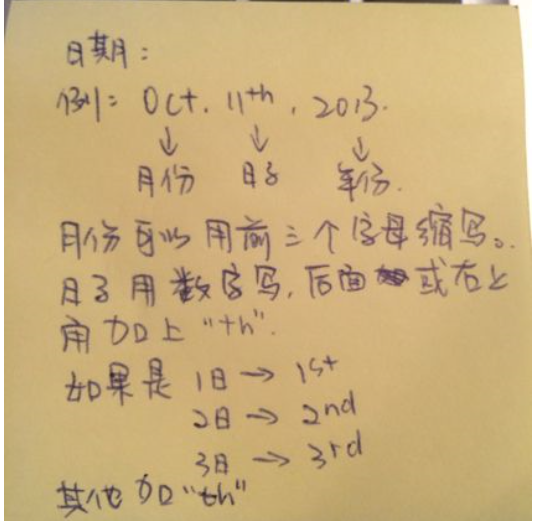 日期：
例：Oct. 11th, 2013.
↓ ↓ ↓
月份 日子 年份.
月份可以用前三个字母缩写。
日子用数字写，后面或右上
角加上“th”.
如果是 1日 → 1st
2日 → 2nd
3日 → 3rd
其他加“th”